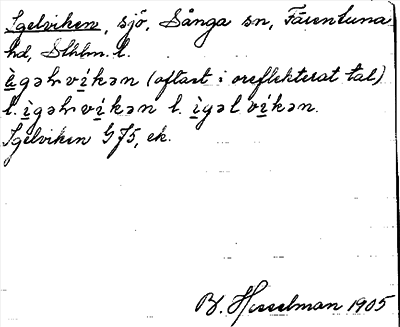 Igelviken, sjö, Sånga sn, Färentuna
hd, Sthlm. l.
ìgəhvíkən (oftast i oreflekterat tal)
l. ìgəhvíkən l. ìgəlvíkən.
Igelviken GJ5, ek.
B. Hesselman 1905